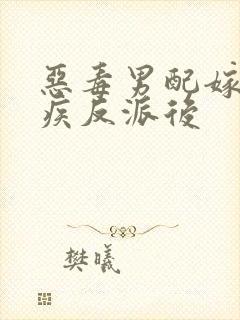 惡毒男配嫁
疾反派後
樊曦